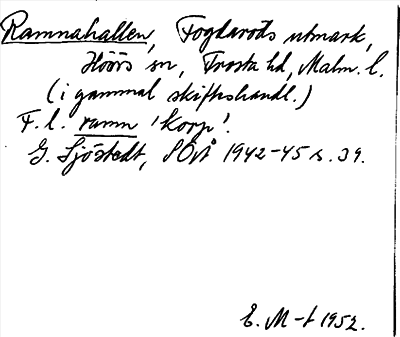 Ramnahallen, Fogdaröds utmark,
Höörs sn, Frosta hd, Malm. l.
(i gammal skifteshandl.)
F.l. ramn 'korp'.
G. Sjöstedt, SOÅ 1942-45 s. 39.
E. M-t 1952.